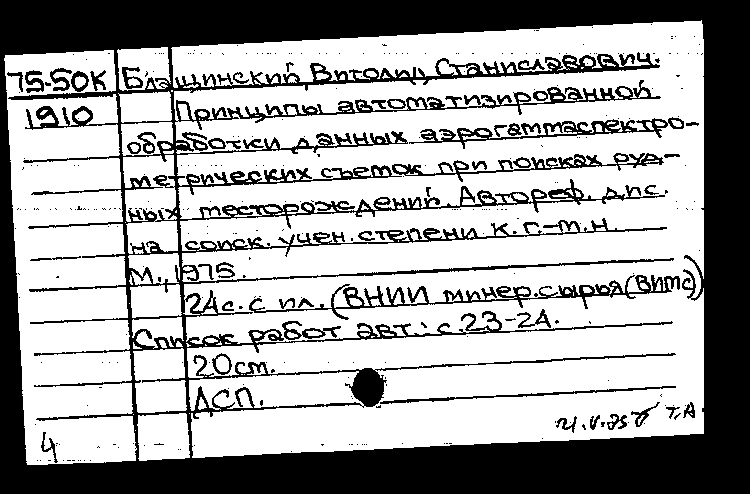 75-50К Блащинский, Витолид Станиславович.
1910 Принципы автоматизированной
обработки данных аэрогаммаспектро-
метрических съемок при поисках руд-
ных месторождений. Автореф. дис.
на соиск. учен. степени к. г.-м.н.
М., 1975.
24с. с ил. (ВНИИ минер. сырья (ВИМС))
Список работ авт.: с. 23-24.
20см.
ДСП.
4 21.V.75 Т.А.